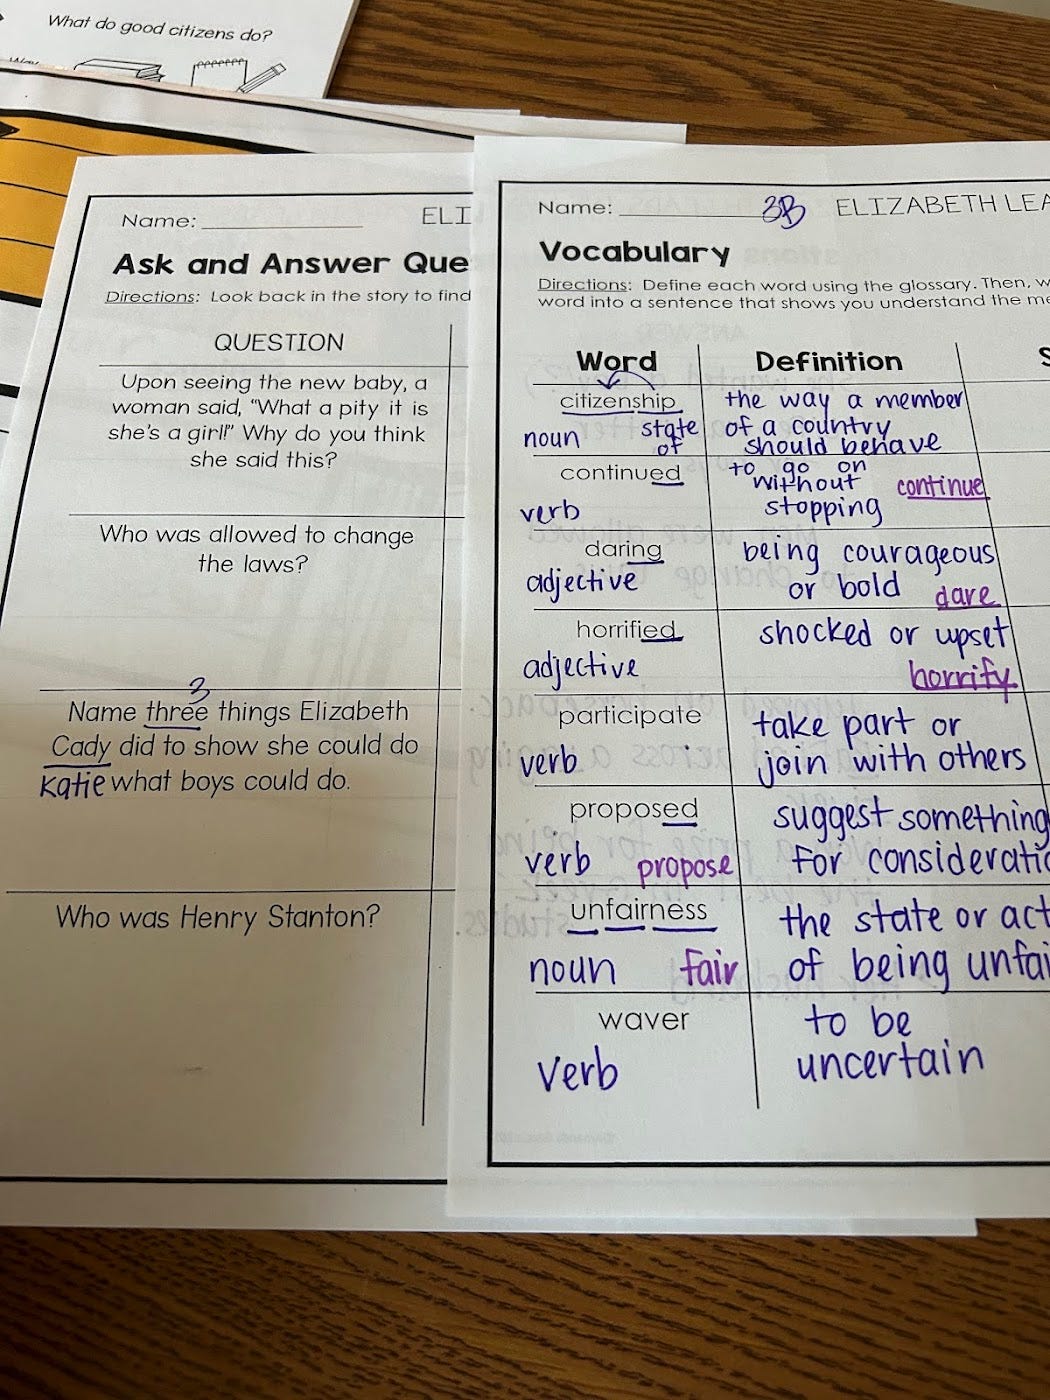 What do good citizens do?
Name:
ELI
Ask and Answer Que
Directions: Look back in the story to find
QUESTION
Upon seeing the new baby, a
woman said, "What a pity it is
she's a girl!" Why do you think
she said this?
Who was allowed to change
the laws?
3
Name three things Elizabeth
Cady did to show she could do
Katie what boys could do.
Who was Henry Stanton?
Name: 3B ELIZABETH LEA
Vocabulary
Directions: Define each word using the glossary. Then, w
word into a sentence that shows you understand the me
Word Definition S
citizenship the way a member
noun state of of a country
should behave
continued to go on
without continue
verb stopping
daring being courageous
adjective or bold dare
horrified shocked or upset
adjective horrify
participate take part or
verb join with others
proposed suggest something
verb propose for consideratio
unfairness the state or act
noun fair of being unfai
waver to be
verb uncertain